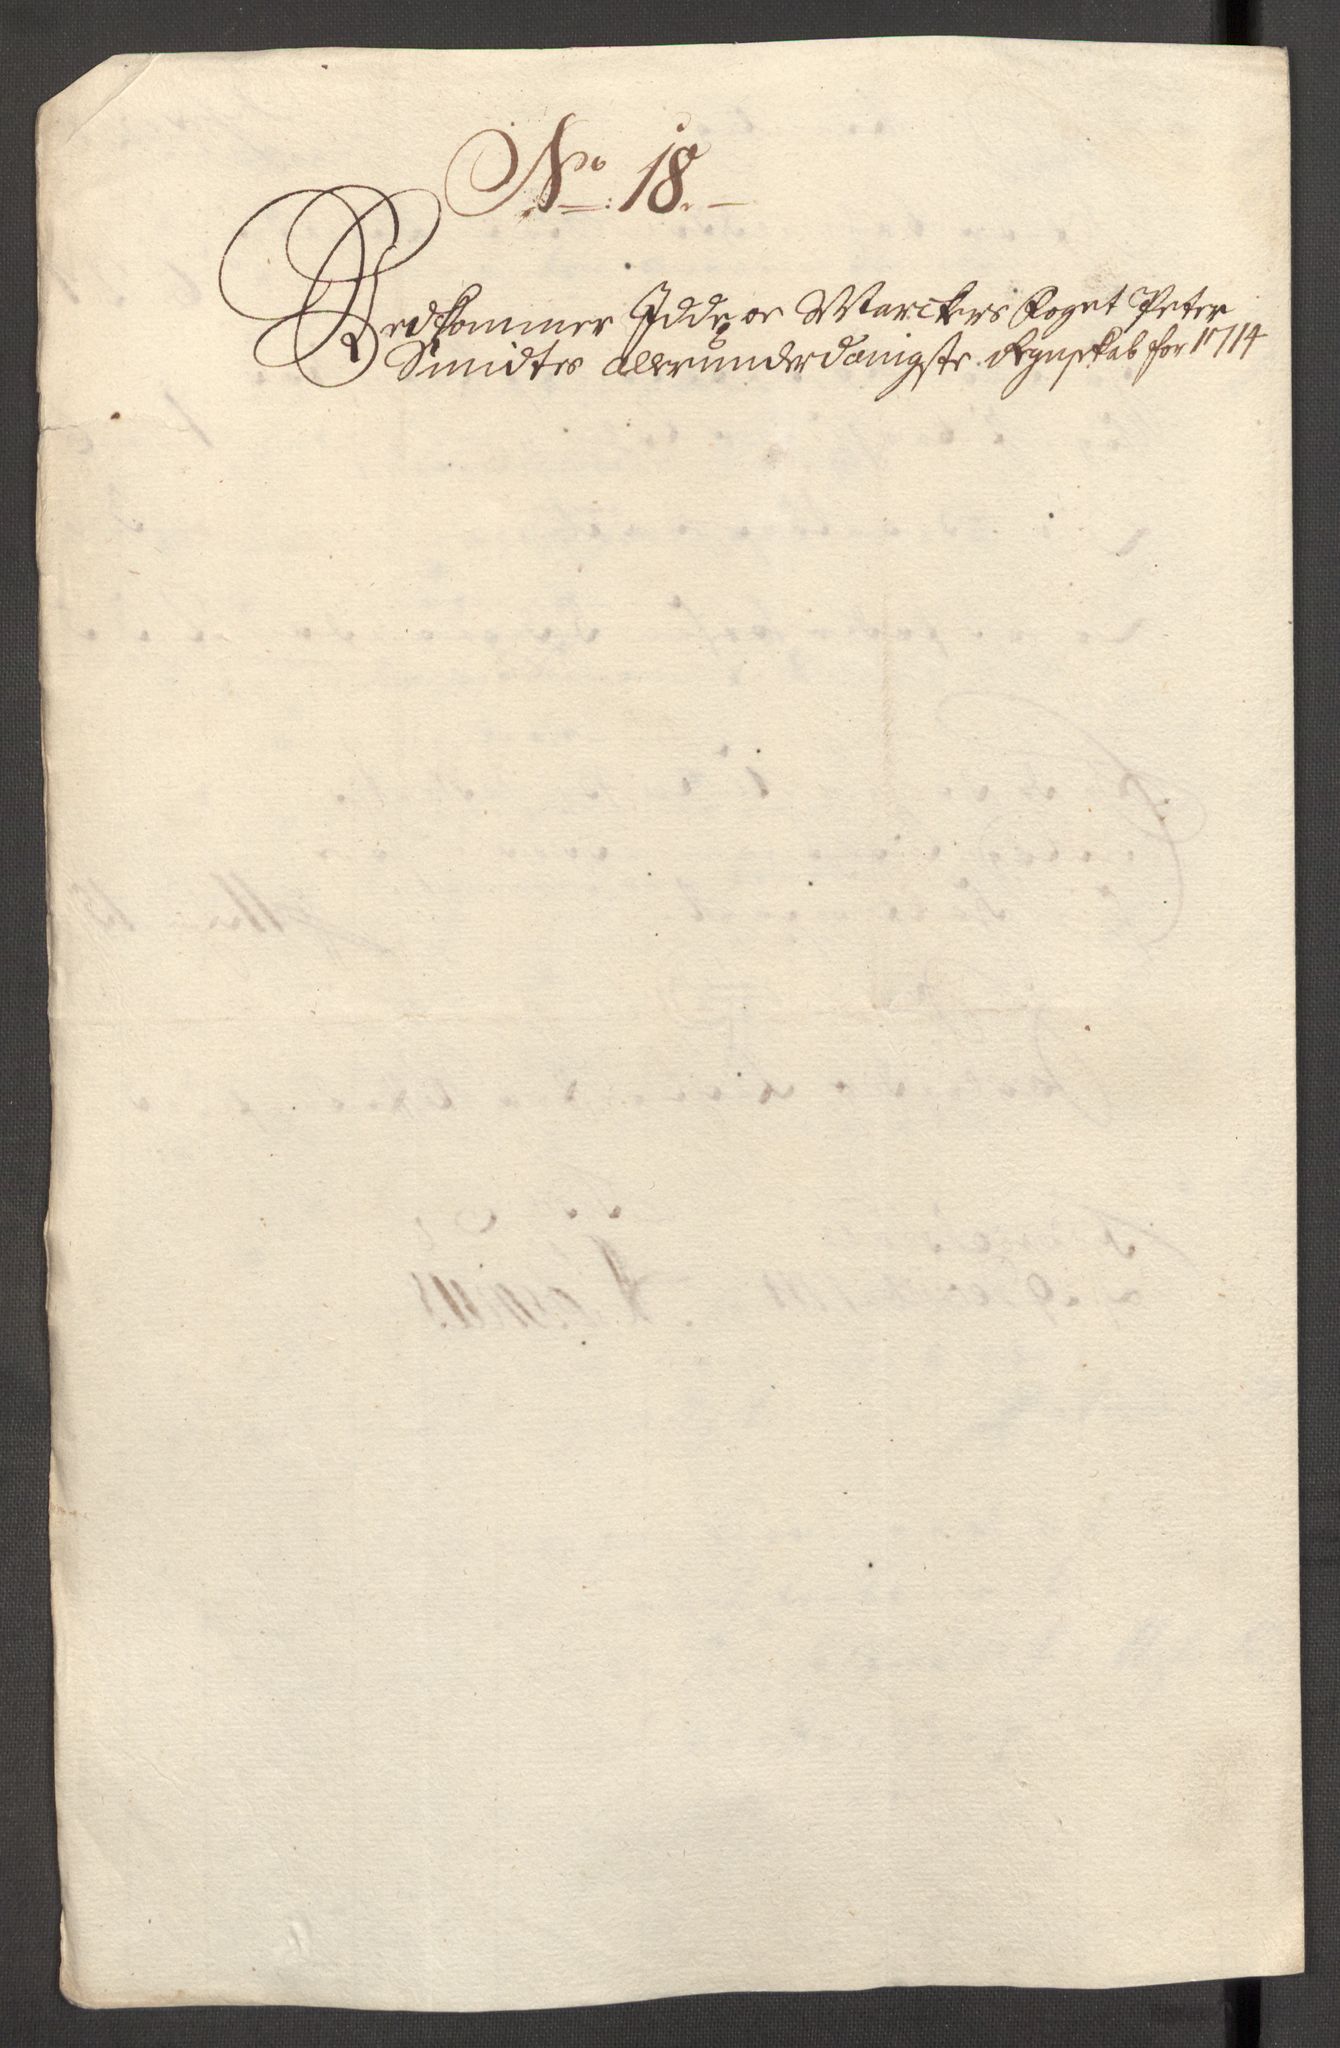 No 18.
Vedkommer Idde oc Marckers Foget Peter
Smidtes allerunderdanigste Regnskab for 1714